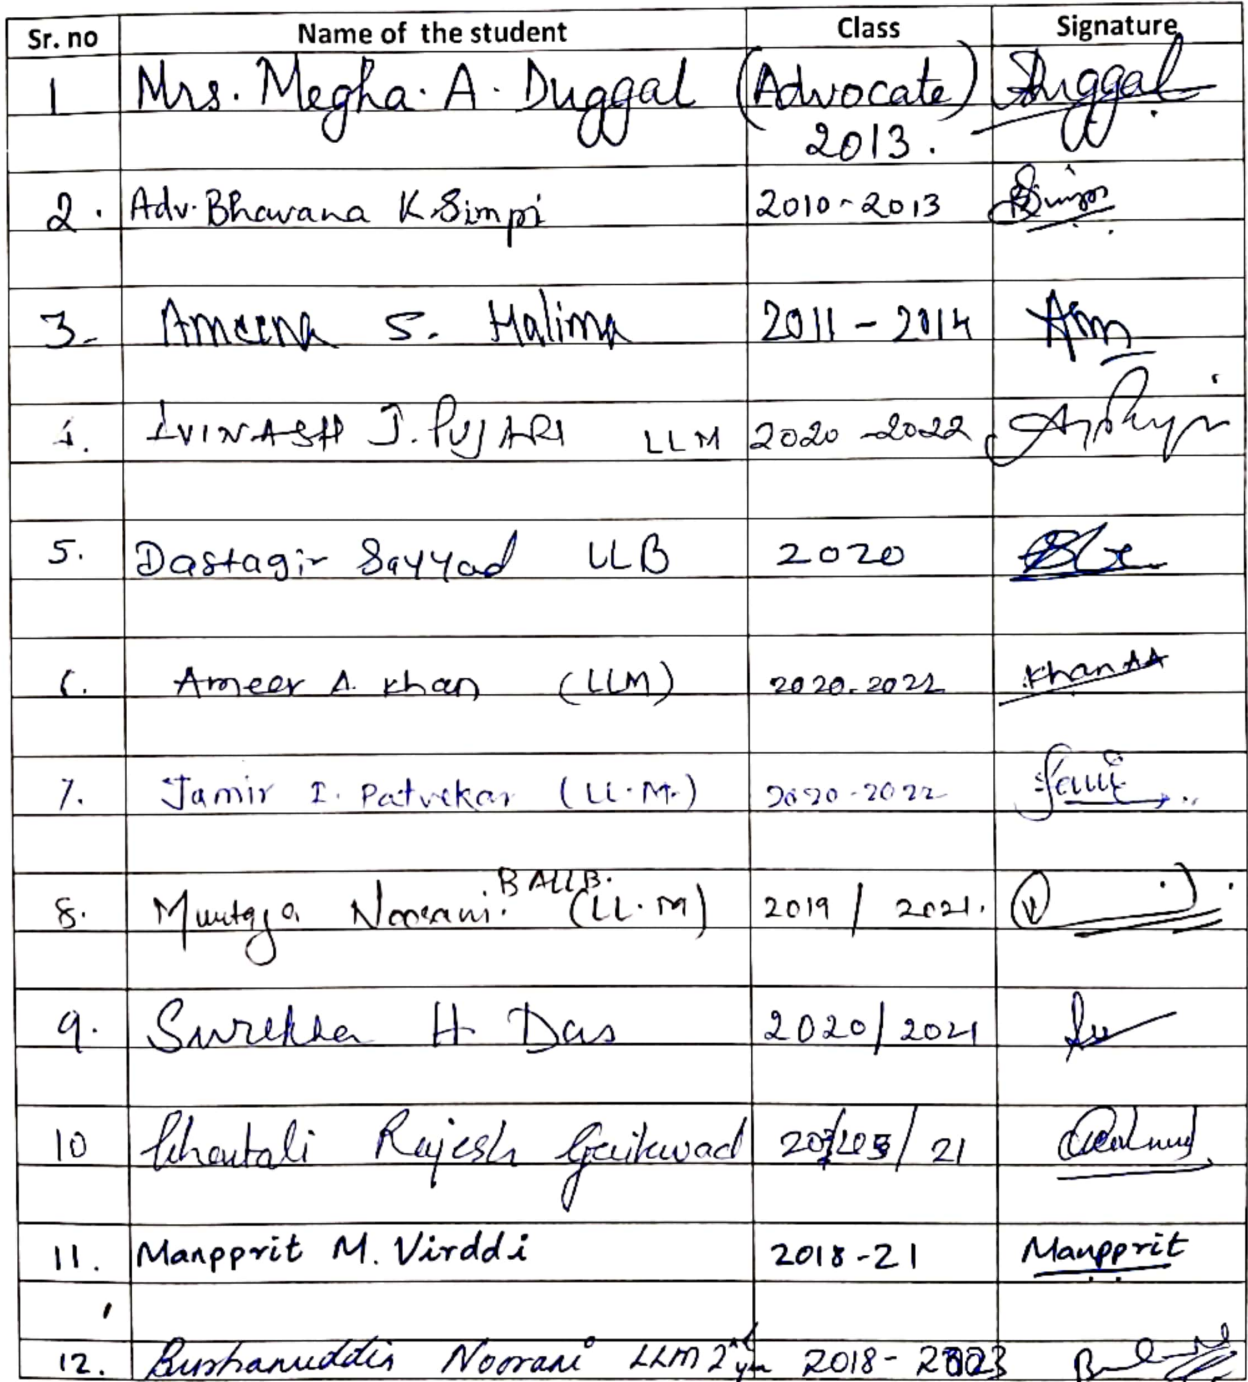 Sr. no Name of the student Class Signature
1 Mrs. Megha. A. Duggal (Advocate) Duggal
2013.
2. Adv. Bhavana K. Simpi 2010-2013
3. Ameena S. Halima 2011 - 2014 Am
4. AVINASH J. PUJARI LLM 2020 - 2022
5. Dastagir Sayyad LLB 2020
6. Ameer A. Khan (LLM) 2020-2022 Khan AA
7. Jamir I. Patvekar (LL.M.) 2020-2022
BALLB.
8. Noorani. (LL.M) 2019 / 2021.
9. Surekha H Das 2020/2021
10 Rajesh Gaikwad / 21
11. Manpprit M. Virddi 2018-21 Manpprit
12. Burhanuddin Noorani LLM 2018-